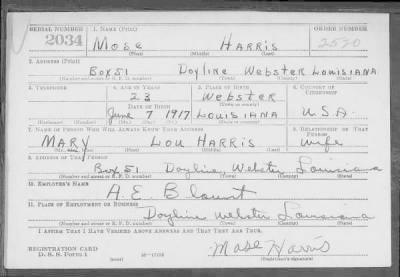 SERIAL NUMBER 1. NAME (Print) ORDER NUMBER
2034 MOSE HARRIS 2520
(First) (Middle) (Last)
2. ADDRESS (Print)
BOX 51 DOYLINE WEBSTER LOUISIANA
(Number and street or R. F. D. number) (Town) (County) (State)
3. TELEPHONE 4. AGE IN YEARS 5. PLACE OF BIRTH 6. COUNTRY OF CITIZENSHIP
23 WEBSTER
DATE OF BIRTH (Town or county)
June 7 1917 LOUISIANA U.S.A.
(Exchange) (Number) (Mo.) (Day) (Yr.) (State or country)
7. NAME OF PERSON WHO WILL ALWAYS KNOW YOUR ADDRESS 8. RELATIONSHIP OF THAT PERSON
MARY LOU HARRIS wife
(Mr., Mrs., Miss) (First) (Middle) (Last)
9. ADDRESS OF THAT PERSON
Box 51 Doyline, Webster, Louisiana
(Number and street or R. F. D. number) (Town) (County) (State)
10. EMPLOYER'S NAME
A. E. Blount
11. PLACE OF EMPLOYMENT OR BUSINESS
Doyline Webster Louisiana
(Number and street or R. F. D. number) (Town) (County) (State)
I AFFIRM THAT I HAVE VERIFIED ABOVE ANSWERS AND THAT THEY ARE TRUE.
REGISTRATION CARD
D. S. S. FORM 1 (over) Mose Harris
(Registrant's signature)